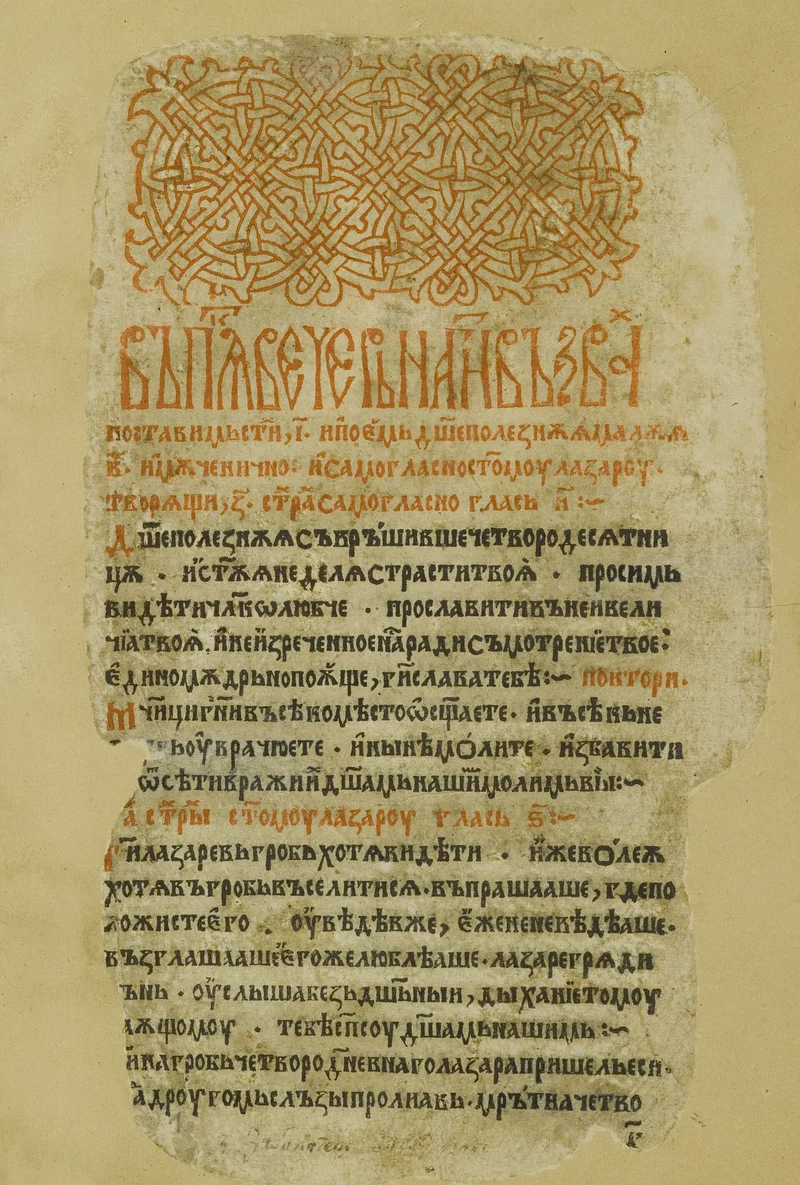 въ пѧⷦ҇ веⷱ҇ерь на г҃и въꙁваⷯ
поставимь стⷯи, і҃· и поемь дш҃еполеꙁнѫѫ
в҃· и мѫченично· и самогласно ст҃омоу лаꙁароу·
твѡрѧщи, ꙁ҃· стрⷯа самогласно глась и҃ :~
Дш҃еполеꙁнѫѧ съврь́шивше четвородесѧтни
цѫ · и ст҃ѫѧ недѣлѧ страсти твоѧ̀ · просимь
видѣти чл҃колюбче · прославити въ неи вели
чїа твоѧ̀, и неиꙁреченное на́ ради съмотренїе твое:
единомѫдрьно поѫще, г҃и слава тебѣ :~ повтори·
Мчн҃ци гн҃и въсѣко мѣсто ѡс҃щаете· и въсѣкь не
оуврачюете · и нынѣ молите · иꙁбавити
ѿ сѣти вражии дш҃амь нашимь молимь вы :~
а҃ стрⷯы ст҃омоу лаꙁароу глась ѕ҃ :~
Г҃и лаꙁаревь гробь хотѧ видѣти · иже волеѫ
хотѧ въ гробь въселити сѧ· въпрашааше, где по
ложисте его · оувѣдѣв же, егоже не невѣдѣаше·
въꙁглашааше егоже люблѣаше· лаꙁаре грѧди
ънь · оуслыша беꙁдш҃ьныи, дыханїе томоу
ѫщомоу · тебѣ сп҃соу дш҃амь нашимь :~
и на гробь четвородн҃евнаго лаꙁара пришель еси·
а дроугомь слъꙁы пролиавь· мрь҃тва четво